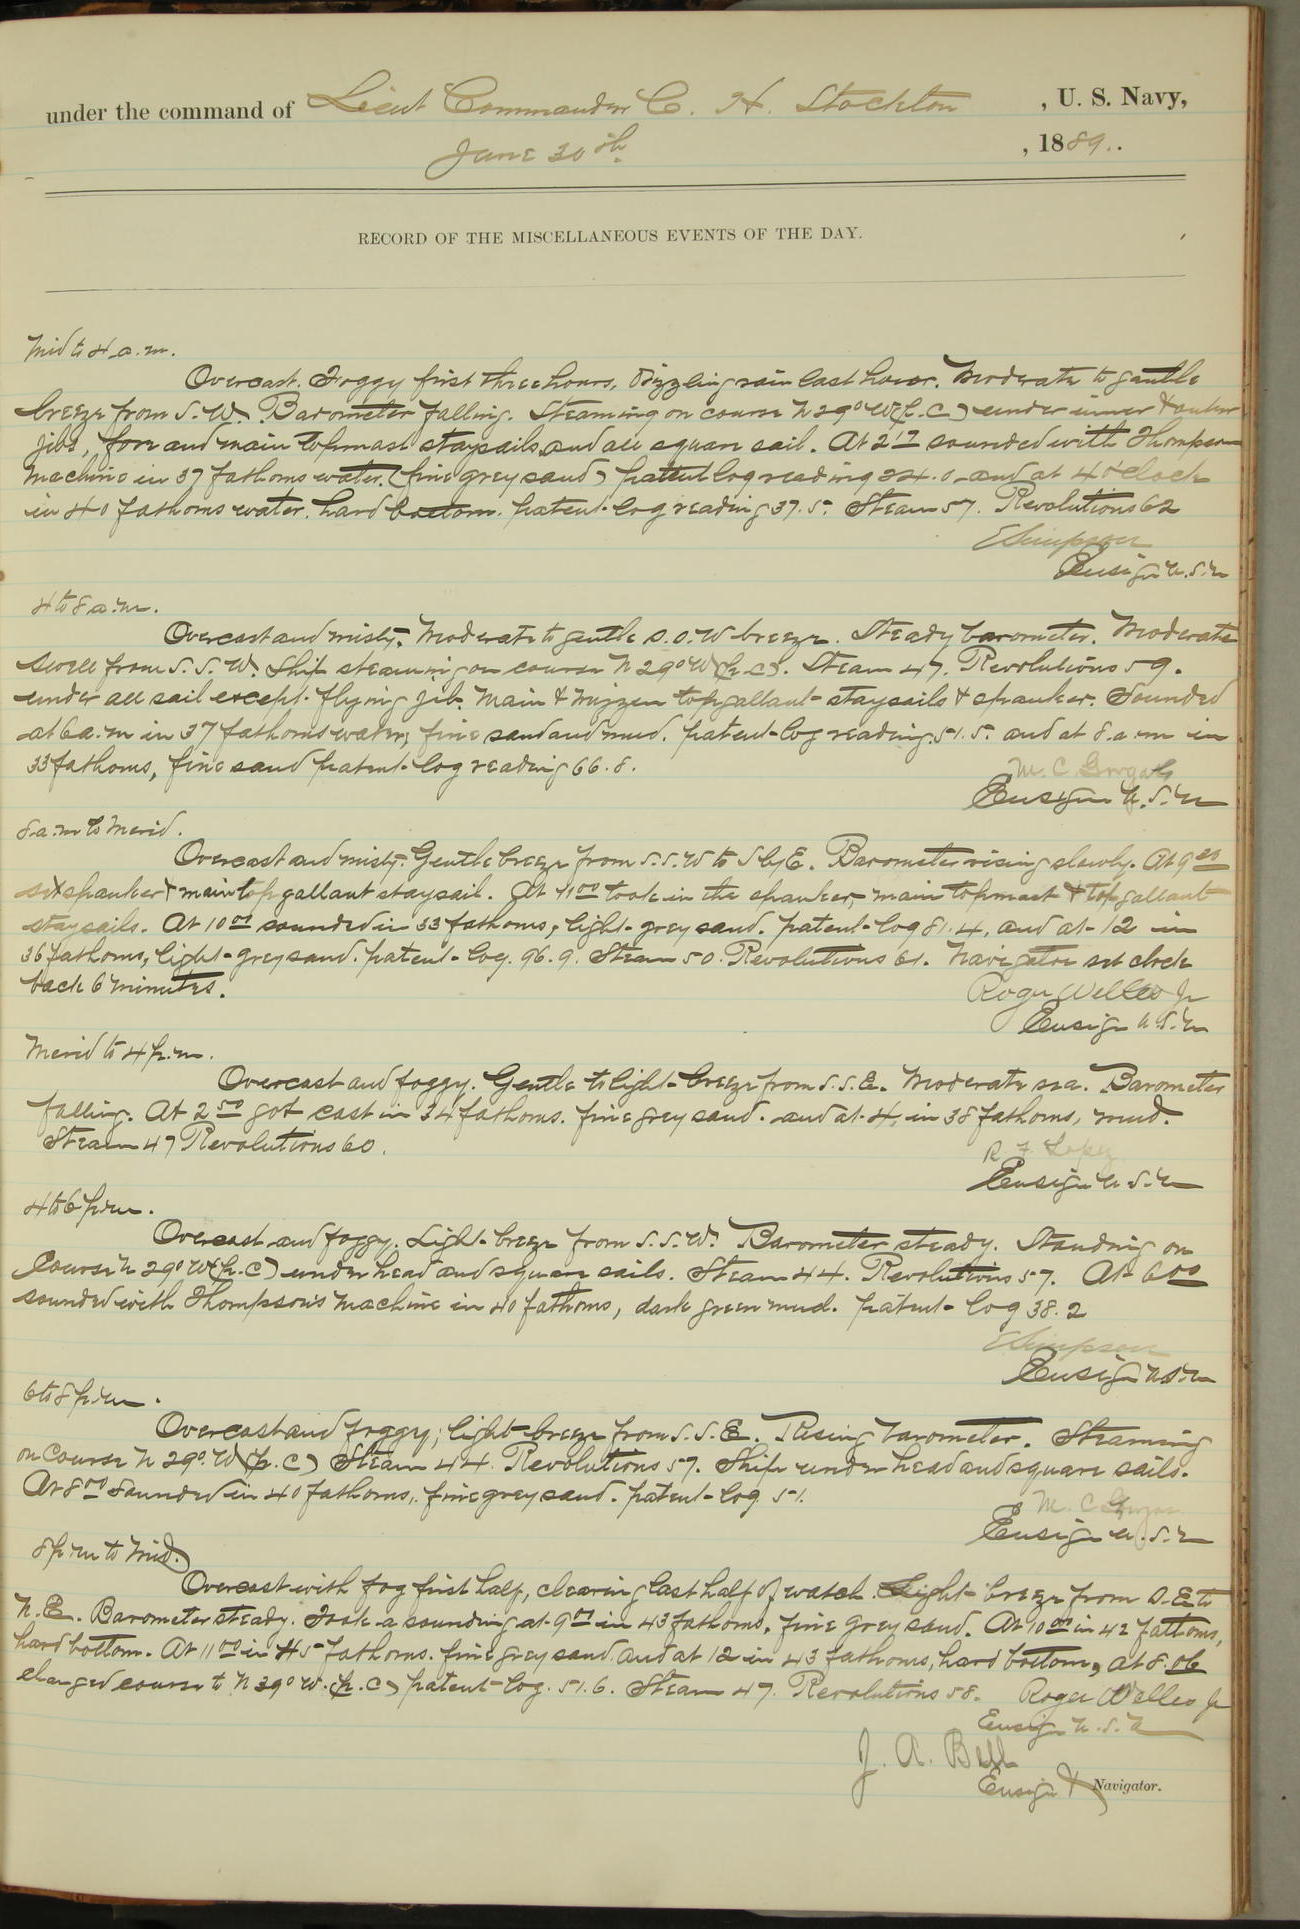 under the command of Lieut Commander C. H. Stockton , U. S. Navy,
June 30th , 1889.
RECORD OF THE MISCELLANEOUS EVENTS OF THE DAY.
Mid to 4 a.m.
Overcast. Foggy first three hours, drizzling rain last hour. Moderate to gentle
breeze from S. W. Barometer falling. Steaming on course N 29° W (p.c.) under inner & outer
jibs, fore and main topmast staysails and all square sail. At 2 sounded with Thompson
machine in 37 fathoms water. (fine grey sand) patent log reading 24.0 and at 4 o'clock
in 40 fathoms water. hard bottom. patent-log reading 37.5. Steam 57. Revolutions 62
E Simpson
Ensign U.S.N
4 to 8 a.m.
Overcast and misty. Moderate to gentle S.S.W breeze. Steady barometer. Moderate
swell from S. S. W. Ship steaming on course N 29° W (p.c.). Steam 47. Revolutions 59.
under all sail except flying jib, Main & Mizzen topgallant-staysails & spanker. Sounded
at 6 a.m in 37 fathoms water, fine sand and mud. patent-log reading 51.5. and at 8 a.m in
33 fathoms, fine sand patent-log reading 66.8.
M. C. Gorgas
Ensign U.S.N
8 a.m to Merid.
Overcast and misty. Gentle breeze from S.S.W to S by E. Barometer rising slowly. At 9 20
set spanker & main top gallant staysail. At 11 00 took in the spanker, main topmast & top gallant
staysails. At 10 00 sounded in 33 fathoms, light-grey sand. patent-log 81.4, and at 12 in
36 fathoms, light-grey sand. patent-log. 96.9. Steam 50. Revolutions 61. Navigator set clock
back 6 minutes.
Roger Welles Jr
Ensign U.S.N
Merid to 4 p.m.
Overcast and foggy. Gentle to light-breeze from S.S.E. Moderate sea. Barometer
falling. At 2 50 got cast in 34 fathoms. fine grey sand. and at 4, in 38 fathoms, mud.
Steam 47 Revolutions 60.
R F Lopez
Ensign U.S.N
4 to 6 p.m.
Overcast and foggy. Light-breeze from S.S.W. Barometer steady. Standing on
Course N 29° W (p.c.) under head and square sails. Steam 44. Revolutions 57. At 6 00
sounded with Thompson's machine in 40 fathoms, dark green mud. patent-log 38.2
E Simpson
Ensign U.S.N
6 to 8 p.m.
Overcast and foggy; light-breeze from S.S.E. Rising barometer. Steaming
on course N 29° W (p.c.) Steam 44. Revolutions 57. Ship under head and square sails.
At 8 00 Sounded in 40 fathoms, fine grey sand. patent-log. 51.
M. C. Gorgas
Ensign U.S.N
8 p.m to Mid.
Overcast with fog first half, clearing last half of watch. Light-breeze from S.E to
N.E. Barometer steady. Took a sounding at 9 00 in 43 fathoms, fine grey sand. At 10 00 in 42 fathoms,
hard bottom. At 11 00 in 45 fathoms. fine grey sand. and at 12 in 43 fathoms, hard bottom, at 8.06
changed course to N 39° W. (p.c.) patent-log. 51.6. Steam 47. Revolutions 58. Roger Welles Jr
Ensign U.S.N
J. A. Bell
Ensign & Navigator.